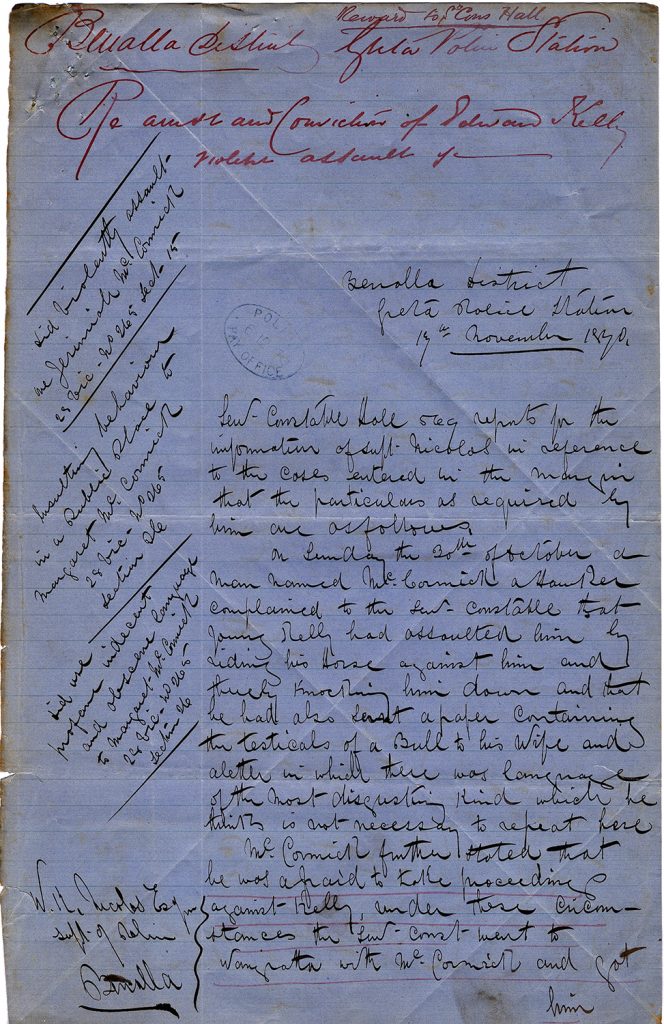 Reward to Sn Cons Hall
Benalla District Greta Police Station
Re arrest and Conviction of Edward Kelly
violent assault &c
did violently assault
one Jerimiah McCormick
28 Vic - No 265 Sect - 15
Insulting behaviour
in a Public Place to
Margaret McCormick
28 Vic - No 265
Section 26
did use
profane indecent
and obscene language
to Margaret McCormick
28 Vic - No 265
Section 26
Benalla District
Greta Police Station
19th November 1870.
POLICE
PAY OFFICE
Senr Constable Hall reports for the
information of Supt Nicolas in reference
to the cases entered in the margin
that the particulars as required by
him are as follows
On Sunday the 30th of October a
man named McCormick a Hawker
complained to the Senr Constable that
young Kelly had assaulted him by
riding his Horse against him and
thereby knocking him down and that
he had also sent a paper containing
the testicals of a Bull to his Wife and
a letter in which there was language
of the most disgusting kind which he
thinks is not necessary to repeat here
McCormick further stated that
he was afraid to take proceedings
against Kelly, under these circum-
stances the Senr Const went to
Wangratta with McCormick and got
him
W. H. Nicolas Esqr
Supt of Police
Benalla